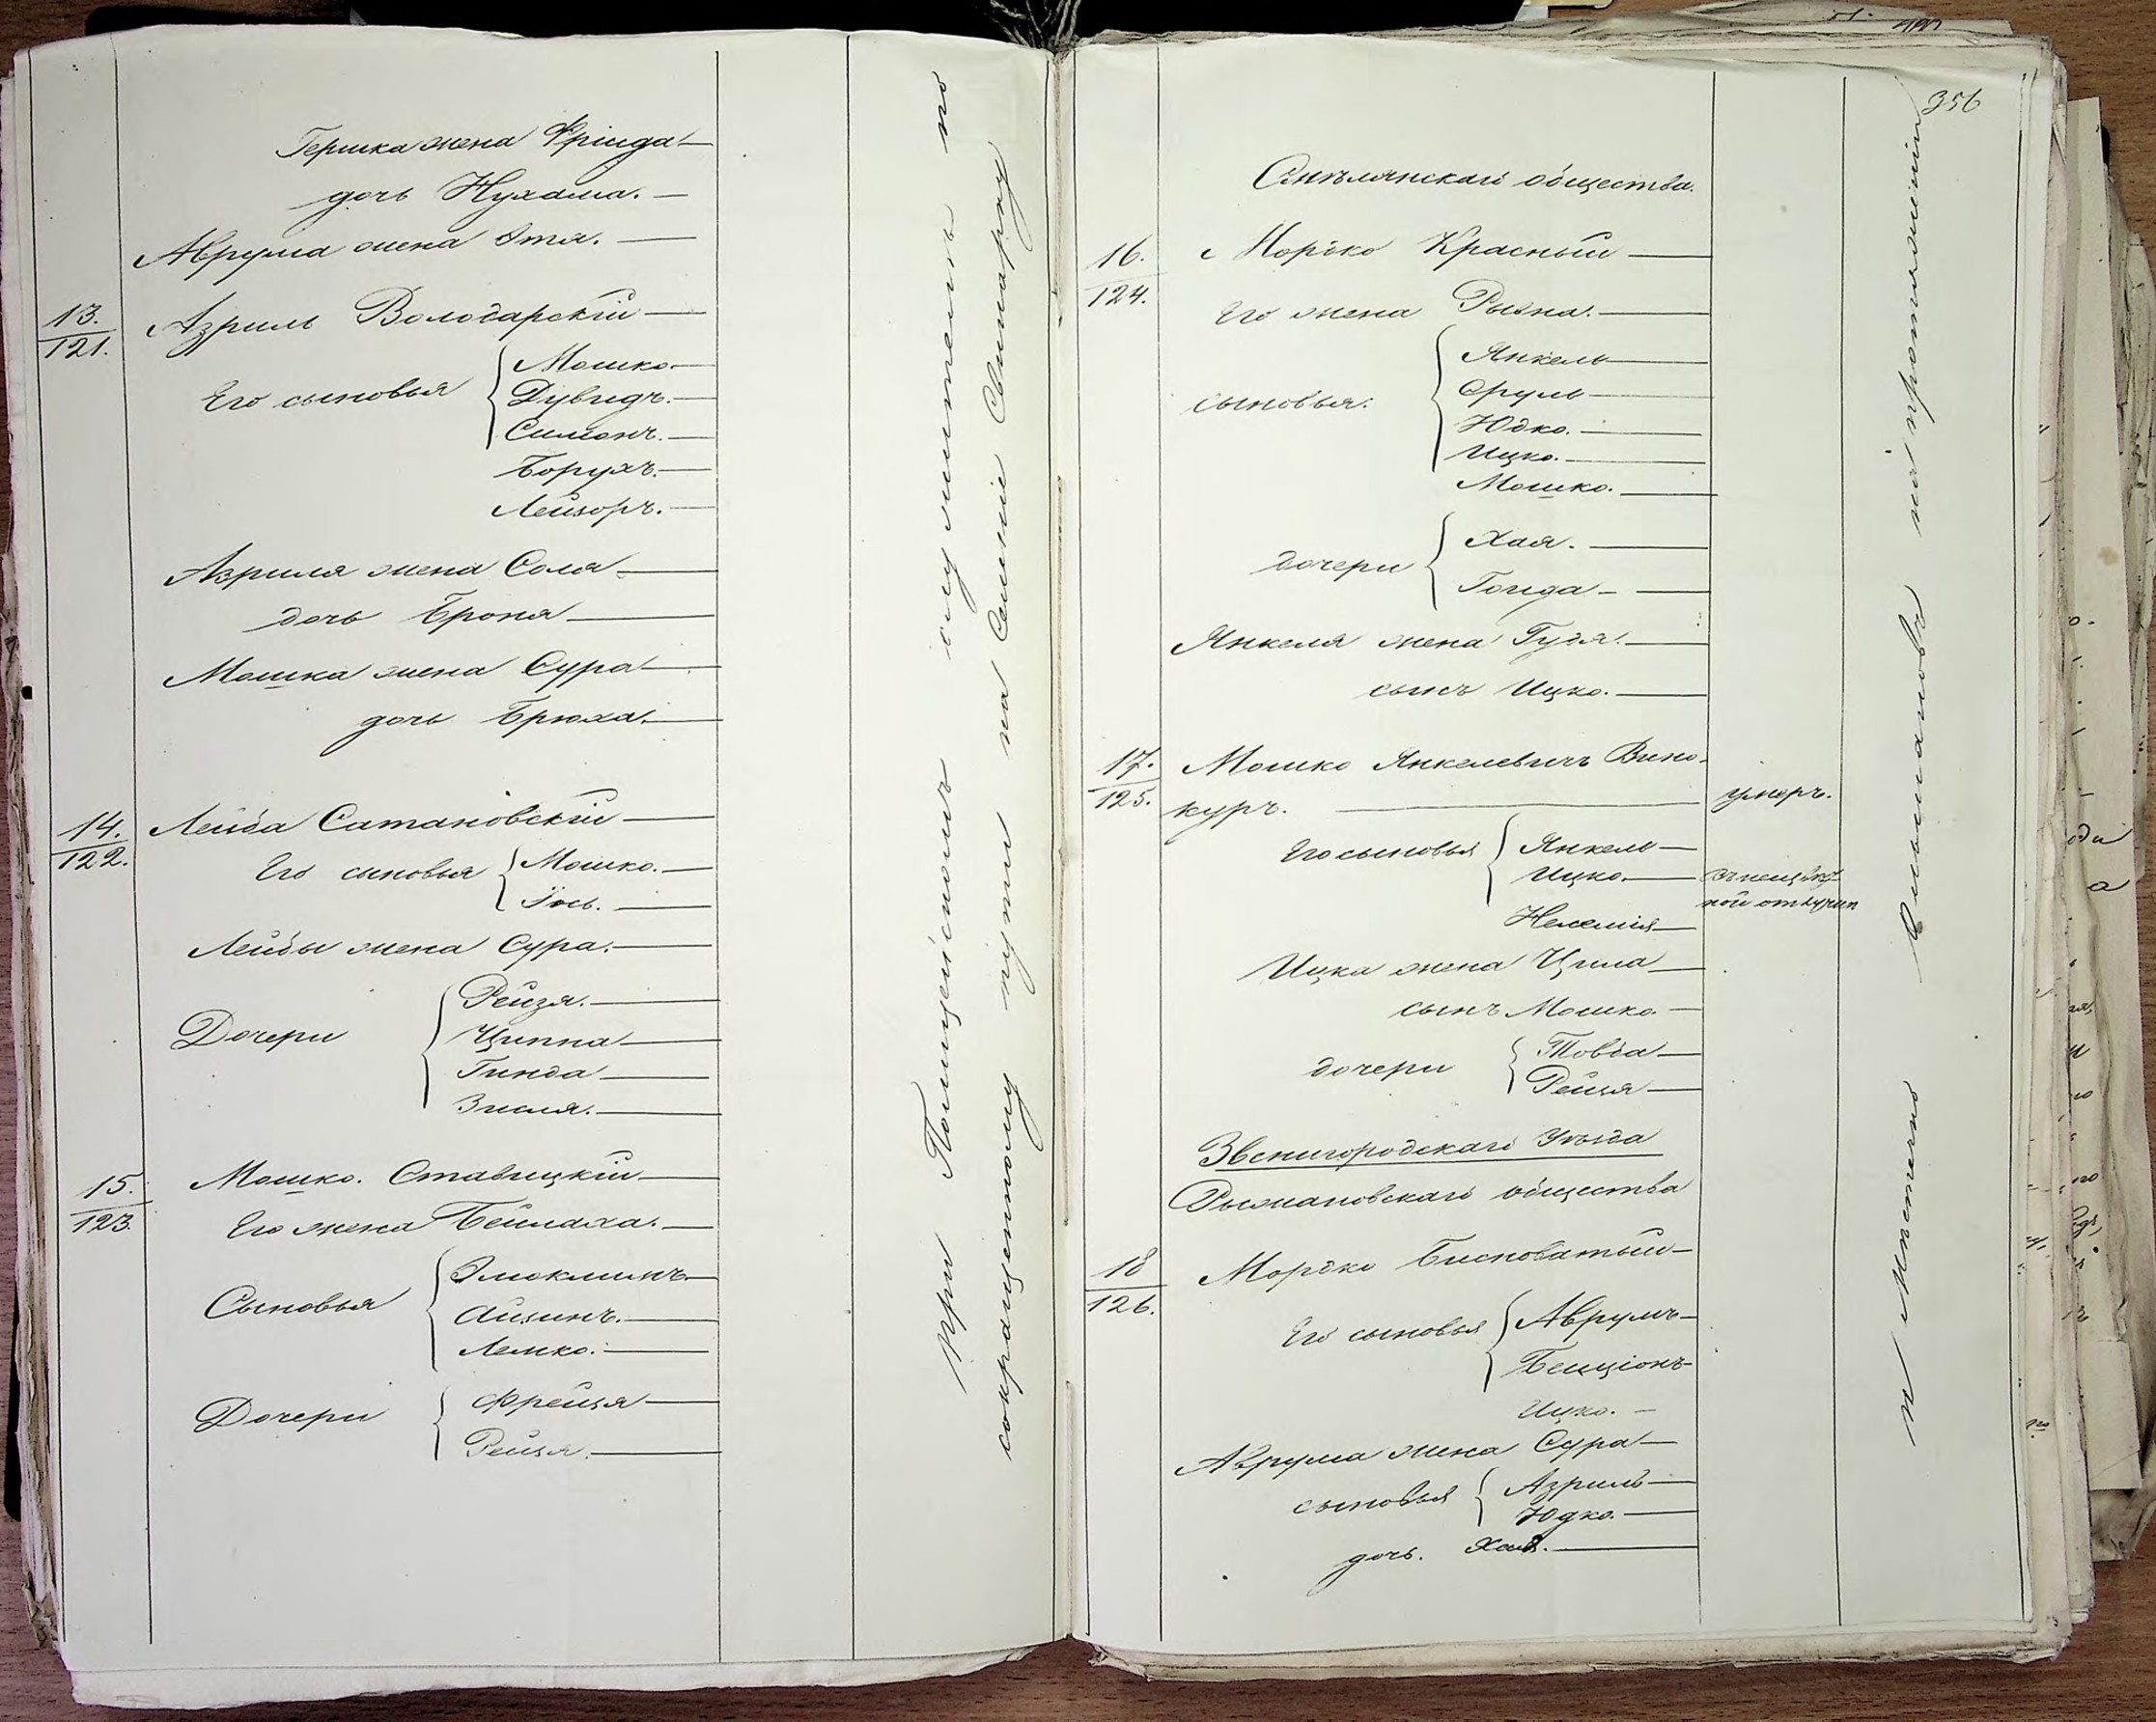 Гершка жена Фрiида
дочь Нухама.
Аврума жена Этя.
13.
121.
Азриль Володарскій
Его сыновья
Мошко.
Дувидъ.
Симонъ.
Борухъ.
Лейзоръ.
Азриля жена Соля
дочь Броня
Мошка жена Сура
дочь Брюха.
14.
122.
Лейба Сатановскій
Его сыновья
Мошко.
Іось.
Лейбы жена Сура.
Дочери
Рейзя.
Циппа
Гинда
Зисля.
15.
123.
Мошко. Ставицкій
Его жена Бейлаха.
Сыновья
Эліокимъ
Айзинъ.
Лемко.
Дочери
Фрейзя
Рейзя.
При Помѣщенномъ
жительствъ по
сокращенному пути на Селеніе Свинарку
356
Смѣлянскаго общества.
16.
124.
Мордко Красный
Его жена Рывка.
сыновья:
Янкель
Сруль
Юдко.
Ицко.
Мошко.
дочери
Хая.
Гольда
Янкеля жена Гудя.
сынъ Ицко.
17.
125.
Мошко Янкелевичъ Вино-
куръ.
умеръ.
Его сыновья
Янкель
Ицко.
Нехемія
Ицка жена Ципа
сынъ Мошко.
дочери
Товба
Рейзя
Звенигородскаго Уѣзда
Рыжановскаго общества
18
126.
Мордко Бисноватый
Его сыновья
Аврумъ
Бенціонъ
Ицко.
Аврума жена Сура
сыновья
Азриль
Юдко.
дочь. Хая.
и Мѣстечко Ольшановъ на протяженіи